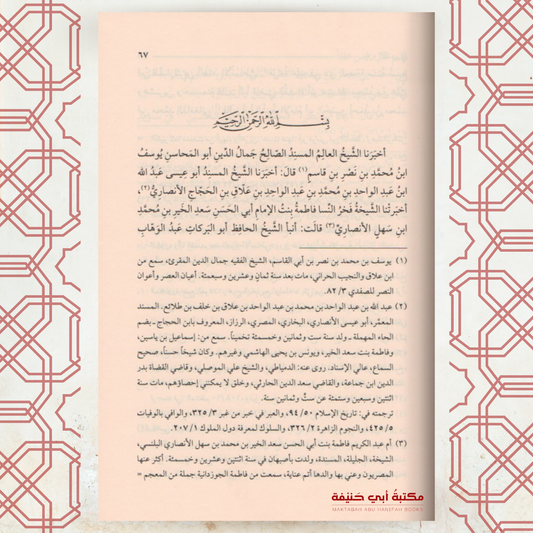 ٦٧
بِسْمِ اللهِ الرَّحْمٰنِ الرَّحِيمِ
أخبَرَنا الشَّيخُ العالِمُ المسنِدُ الصّالِحُ جَمالُ الدِّينِ أبو المحاسنِ يُوسفُ
ابنُ مُحمَّدِ بنِ نَصْرِ بنِ قاسمٍ(١) قالَ: أخبَرَنا الشَّيخُ المسنِدُ أبو عِيسى عَبدُ الله
ابنُ عَبدِ الواحدِ بنِ مُحمَّدِ بنِ عَبدِ الواحِدِ بنِ عَلَّاقِ بنِ الحَجّاجِ الأنصاريُّ(٢)،
أخبَرَتْنا الشَّيخةُ فَخرُ النِّسا فاطمةُ بِنتُ الإمامِ أبي الحَسَنِ سَعدِ الخَيرِ بنِ مُحمَّدِ
ابنِ سَهلٍ الأنصاريِّ(٣) قالَت: أنبأَ الشَّيخُ الحافظُ أبو البَركاتِ عَبدُ الوَهّابِ
(١) يوسف بن محمد بن نصر بن أبي القاسم، الشيخ الفقيه جمال الدين المقرئ، سمع من
ابن علاق والنجيب الحراني، مات بعد سنة ثمانٍ وعشرين وسبعمئة. أعيان العصر وأعوان
النصر للصفدي ٣/ ٨٢.
(٢) عبد الله بن عبد الواحد بن محمد بن عبد الواحد بن علاق بن خلف بن طلائع، المسند
المعمَّر، أبو عيسى الأنصاري، البخاري، المصري، الرزاز، المعروف بابن الحجاج ـ بضم
الحاء المهملة ـ ولد سنة ست وثمانين وخمسمئة تخميناً. سمع من: إسماعيل بن ياسين،
وفاطمة بنت سعد الخير، ويونس بن يحيى الهاشمي وغيرهم. وكان شيخاً حسناً، صحيح
السماع، عالي الإسناد. روى عنه: الدمياطي، والشيخ علي الموصلي، وقاضي القضاة بدر
الدين ابن جماعة، والقاضي سعد الدين الحارثي، وخلق لا يمكنني إحصاؤهم، مات سنة
اثنتين وسبعين وستمئة عن ستٍّ وثمانين سنة.
ترجمته في: تاريخ الإسلام ٥٠/ ٩٤، والعبر في خبر من غبر ٣/ ٣٢٥، والوافي بالوفيات
٥/ ٤٢٥، والنجوم الزاهرة ٢/ ٣٢٦، والسلوك لمعرفة دول الملوك ١/ ٢٠٧.
(٣) أم عبد الكريم فاطمة بنت أبي الحسن سعد الخير بن محمد بن سهل الأنصاري البلنسي،
الشيخة، الجليلة، المسندة، ولدت بأصبهان في سنة اثنتين وعشرين وخمسمئة: أكثر عنها
المصريون وعني بها والدها أتم عناية، سمعت من فاطمة الجوزدانية جملة من المعجم =
مكتبة أبي حنيفة
MAKTABAH ABU HANIFAH BOOKS